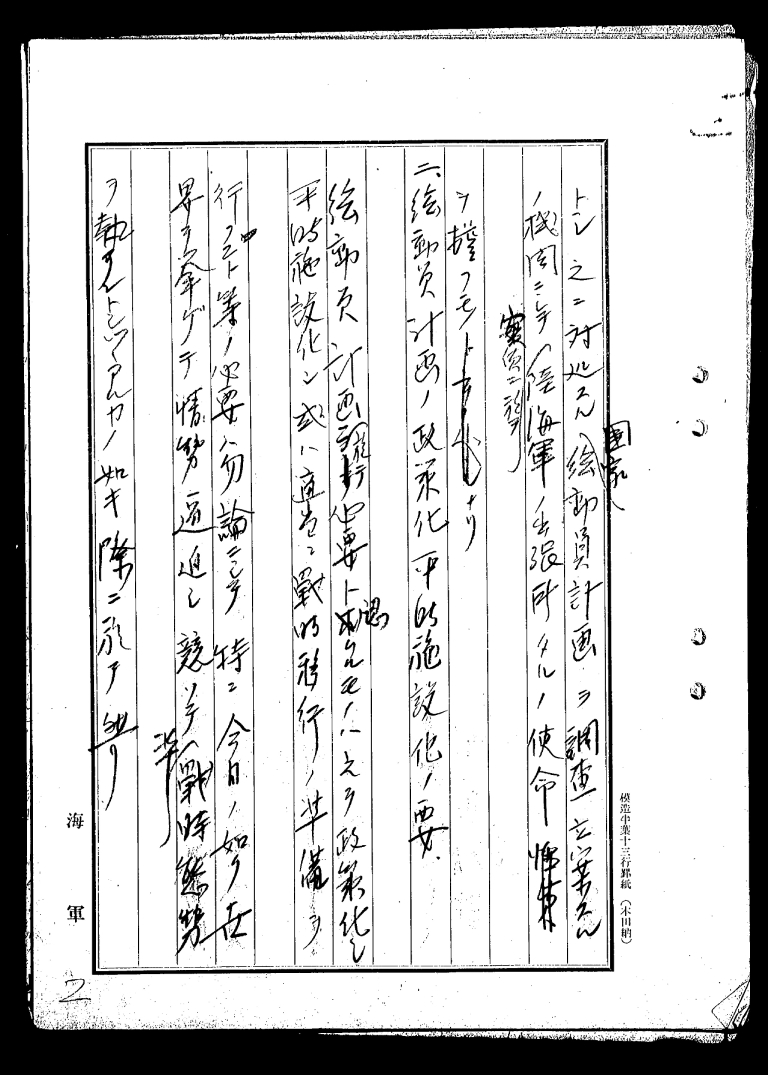 トシ之ニ対処スル総動員計画ヲ調査立案スル
国家
ノ機関ニシテ陸海軍ノ出張所タルノ使命
実質ニ於テ
ヲ
二、総動員計画ノ政策化平時施設化ノ要
総動員計画 必要ト認ムルモノハ之ヲ政策化シ
平時施設化シ或ハ適宜ニ戦時移行ノ準備ヲ
行フコト等ノ必要ハ勿論ニシテ特ニ今日ノ如ク世
界ヲ挙ゲテ情勢逼迫シ競ツテ戦時態勢
準
ヲ執ラントシツツアルカノ如キ際ニ於テ然リ
海軍
模造半葉十三行罫紙(本田納)
2